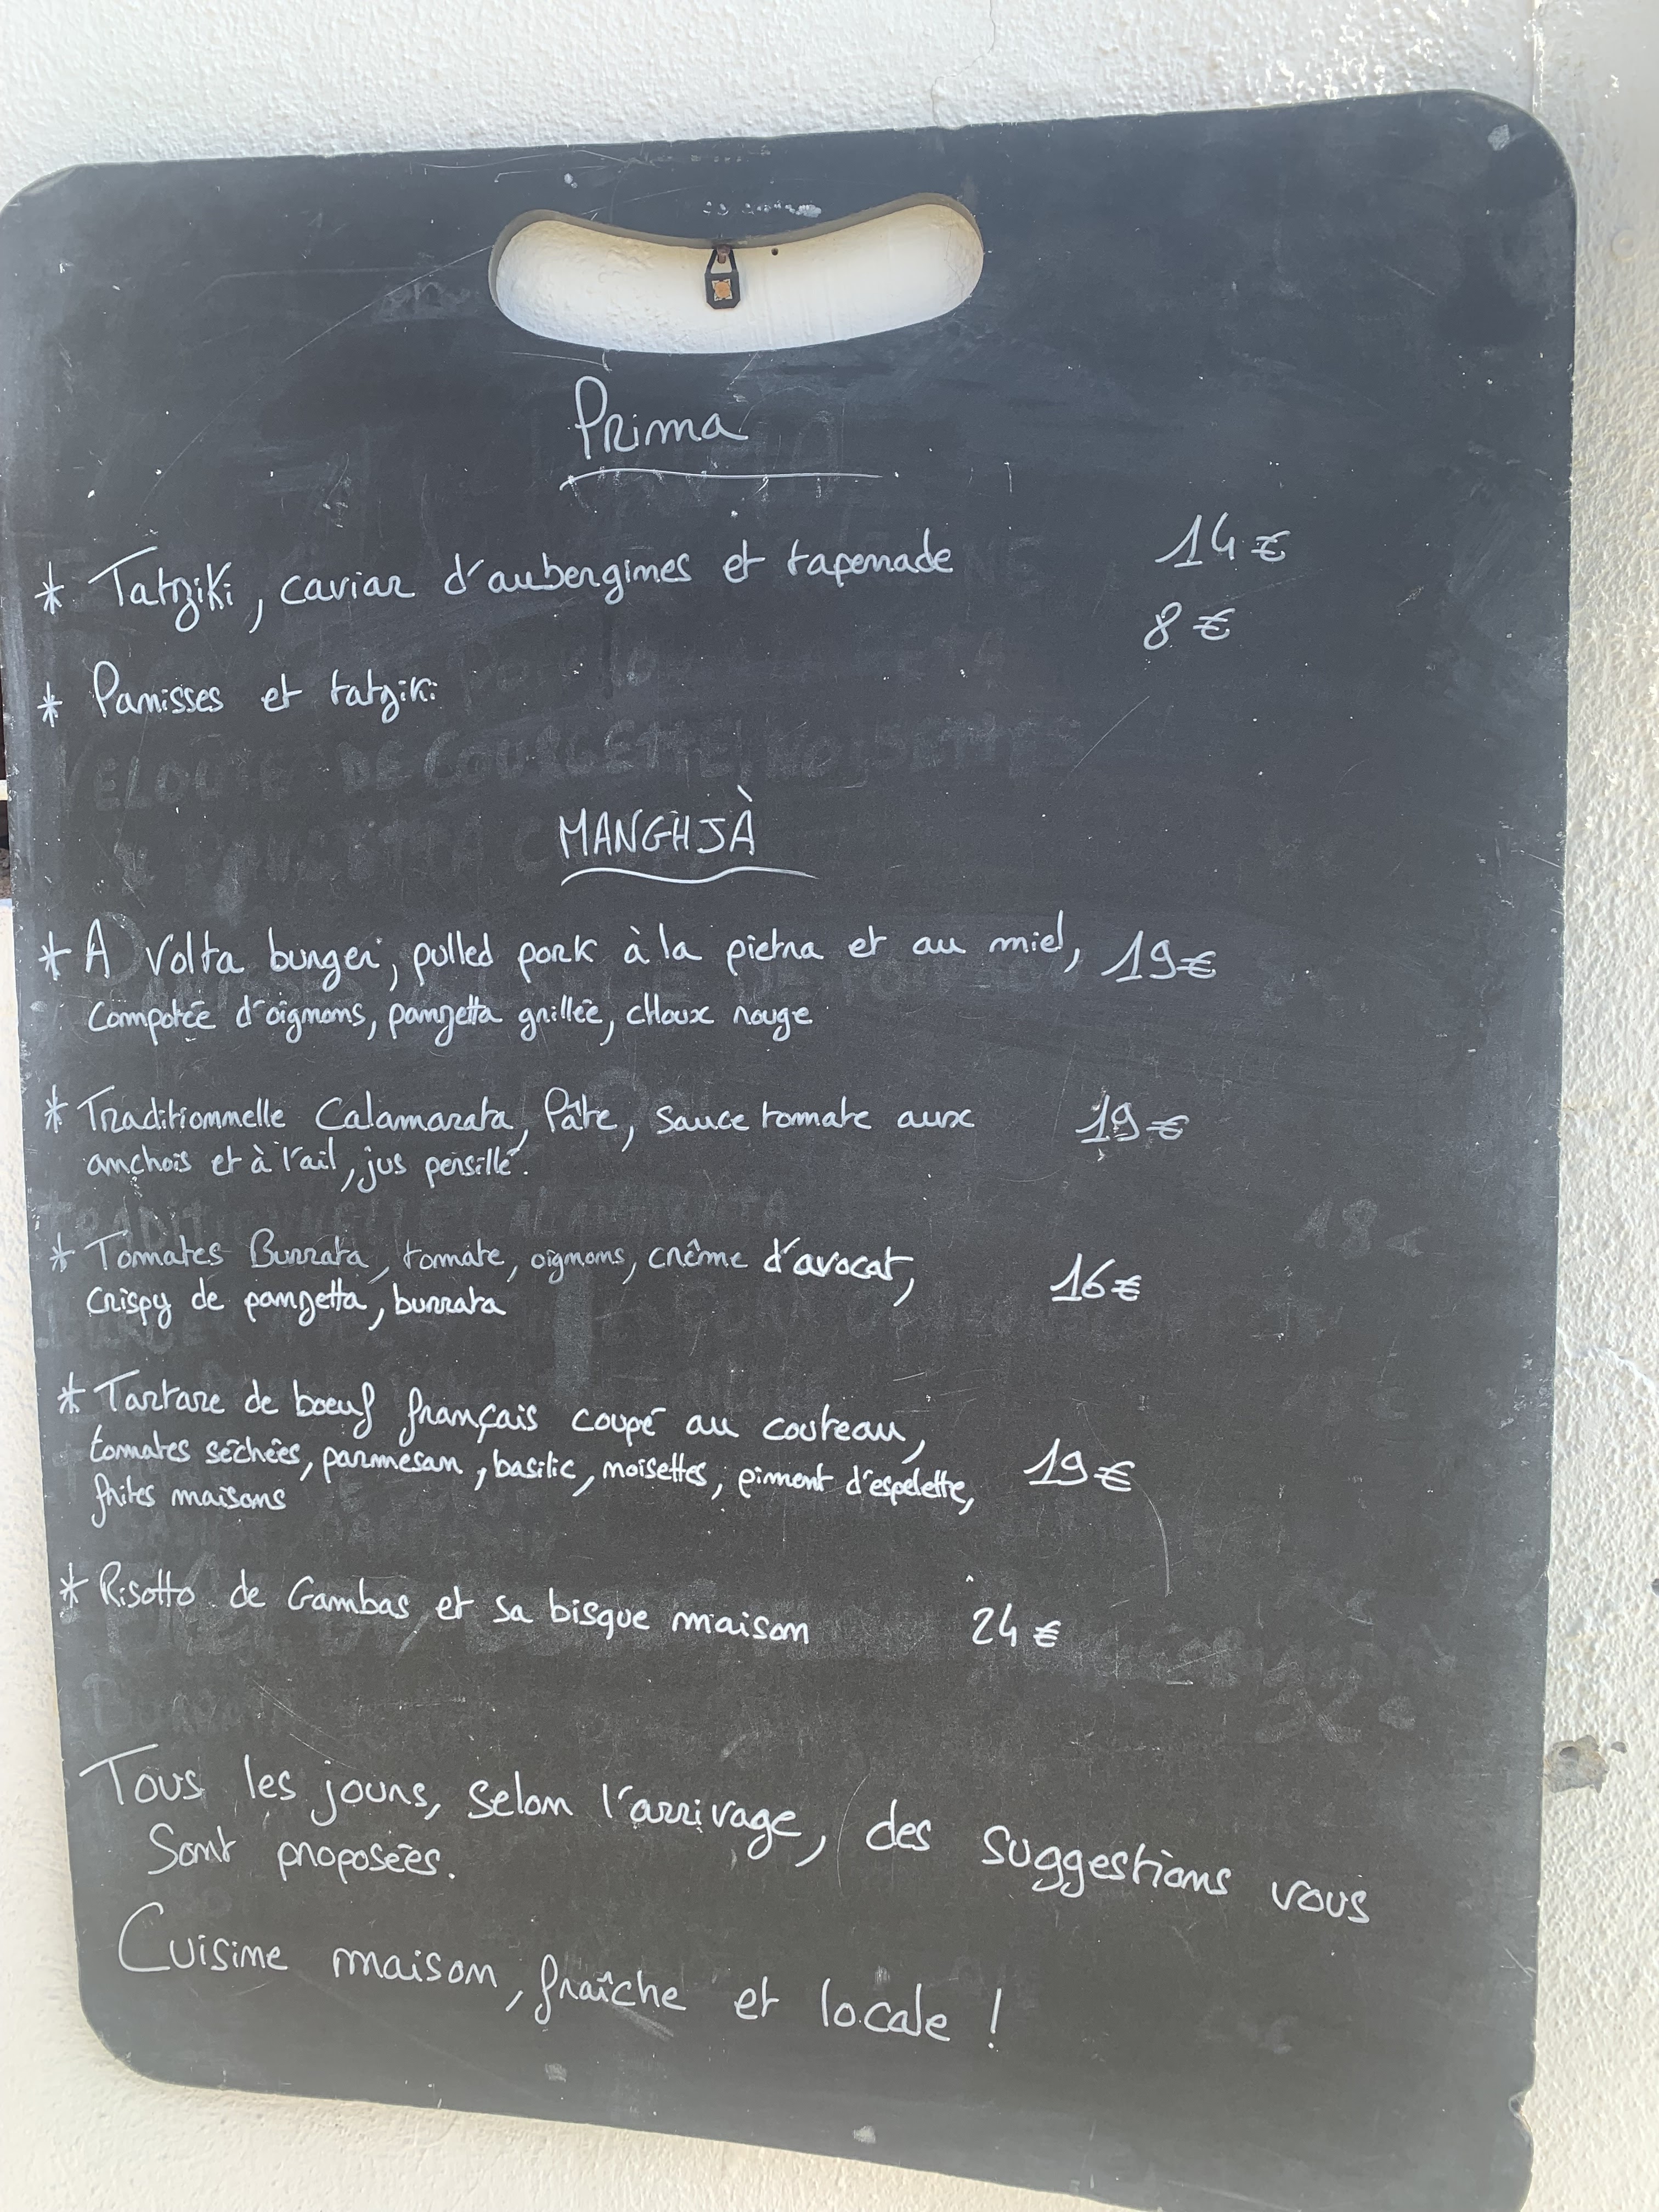 Prima
* Tatziki, caviar d'aubergines et tapenade 14€
* Panisses et tatziki 8€
MANGHJÀ
* A Volta burger, pulled pork à la pietra et au miel, 19€
Compotée d'oignons, panzetta grillée, choux rouge
* Traditionnelle Calamarata, Pâte, sauce tomate aux 19€
anchois et à l'ail, jus persillé.
* Tomates Burrata, tomate, oignons, crème d'avocat, 16€
crispy de panzetta, burrata
* Tartare de boeuf français coupé au couteau,
tomates séchées, parmesan, basilic, noisettes, piment d'espelette, 19€
frites maisons
* Risotto de Gambas et sa bisque maison 24€
Tous les jours, selon l'arrivage, des suggestions vous
Sont proposées.
Cuisine maison, fraîche et locale !